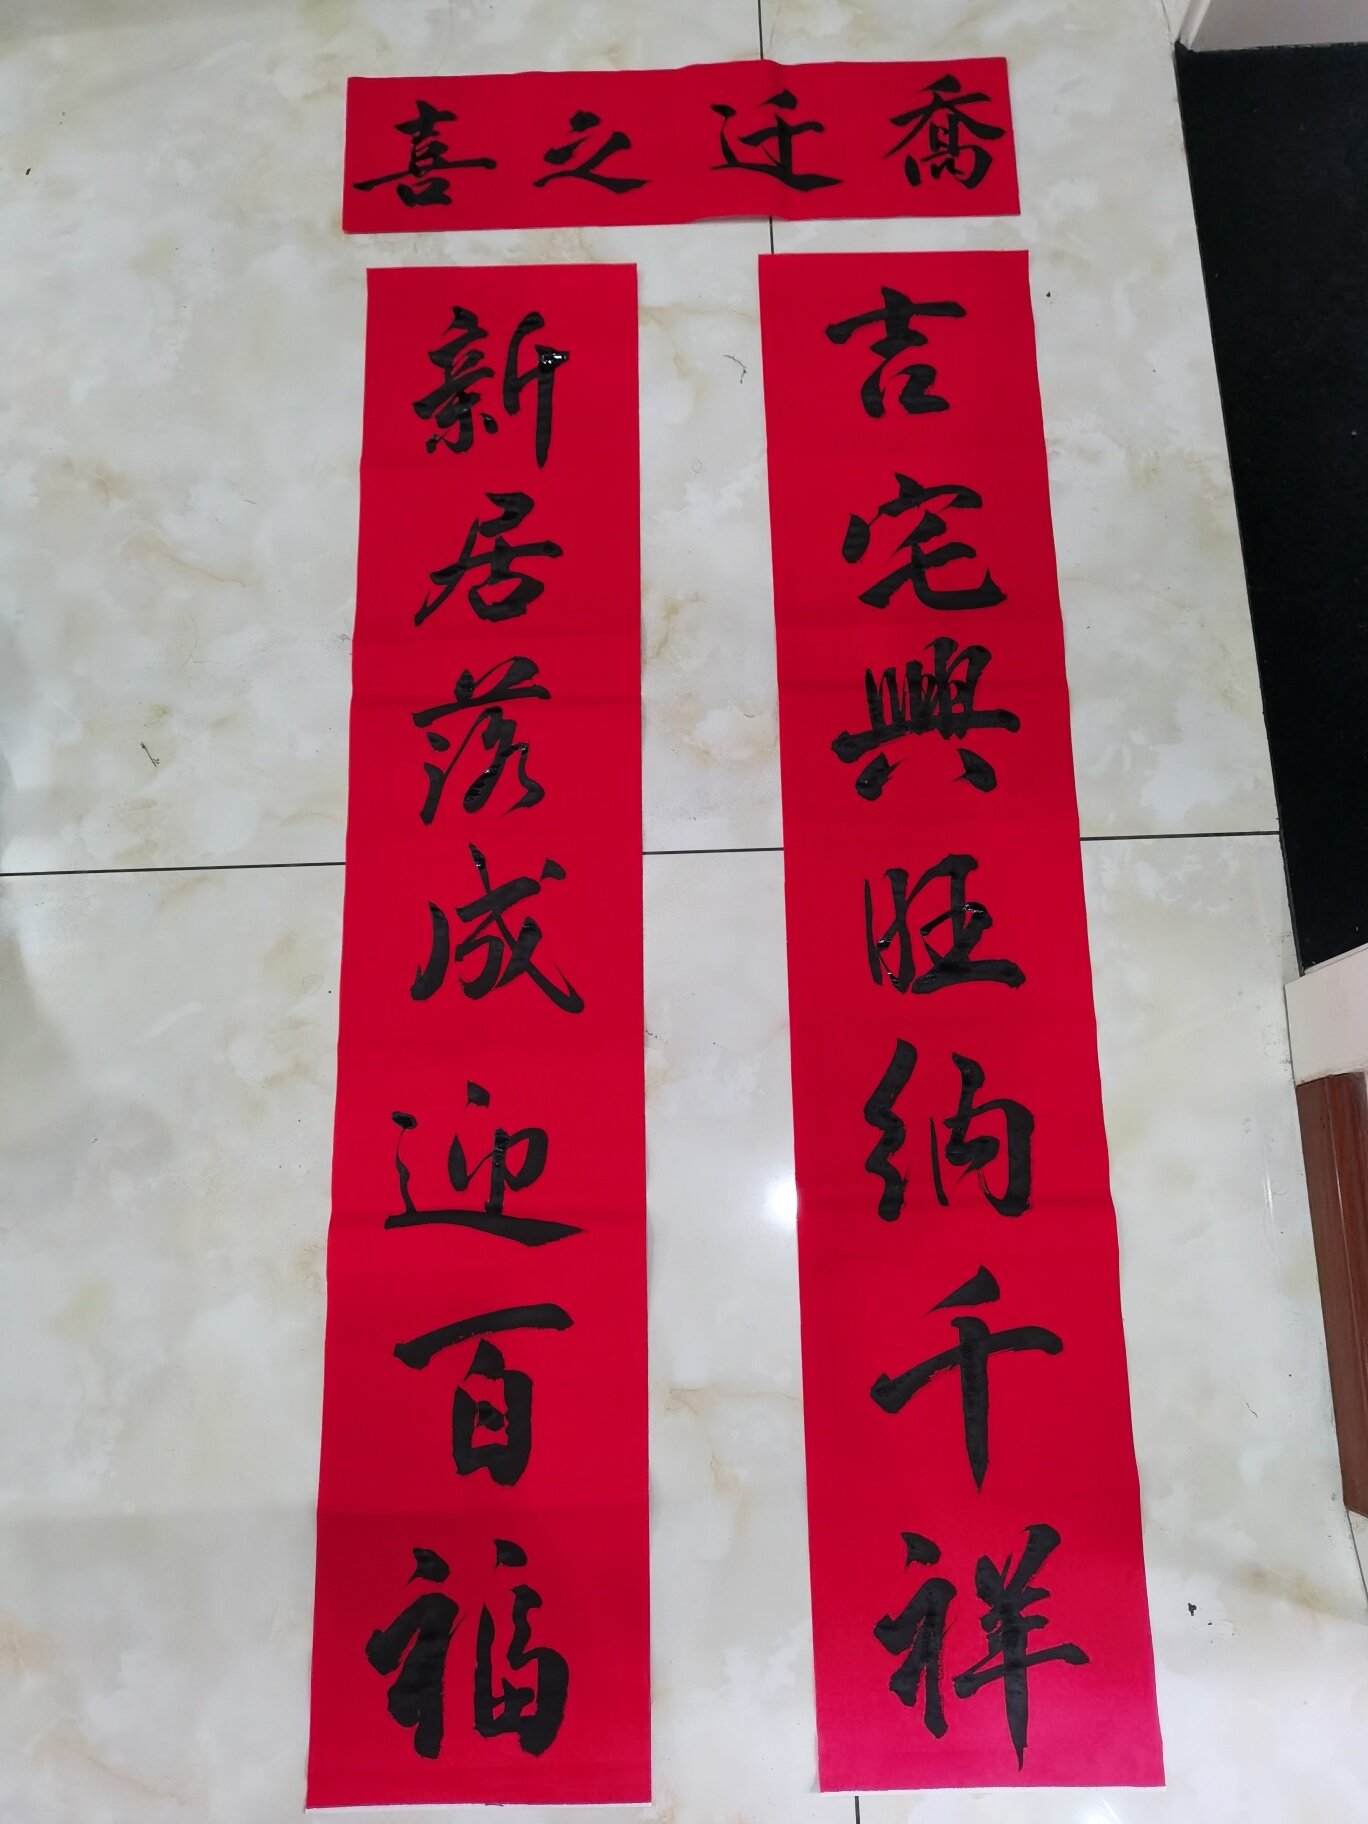 喬迁之喜
吉宅興旺納千祥
新居落成迎百福